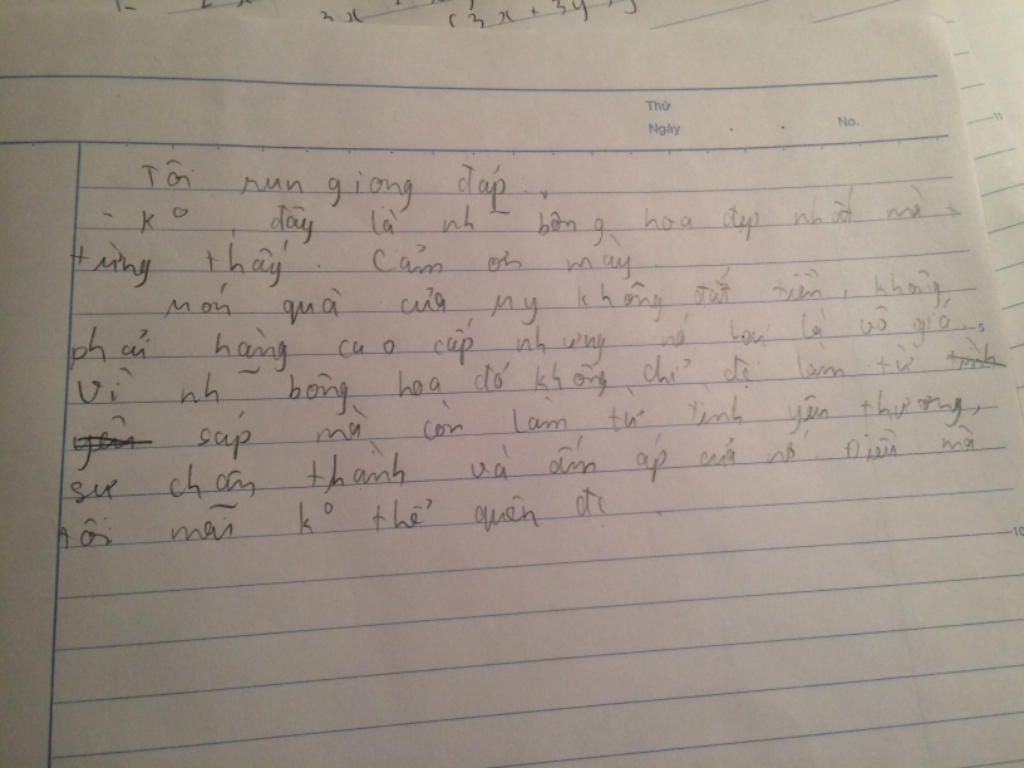 3x (3x+3y)
Thứ
Ngày No.
Tôi run giọng đáp.
- Kº, đây là nh bông hoa đẹp nhất mà
từng thấy. Cảm ơn mày
Món quà của My không đắt tiền, không
phải hàng cao cấp nhưng nó lại là vô giá. 5
Vì nh~ bông hoa đó không chỉ đc làm từ
sáp mà còn làm từ tình yêu thương,
sự chân thành và ấm áp của nó. Điều mà
tôi mãi kº thể quên đi.
10